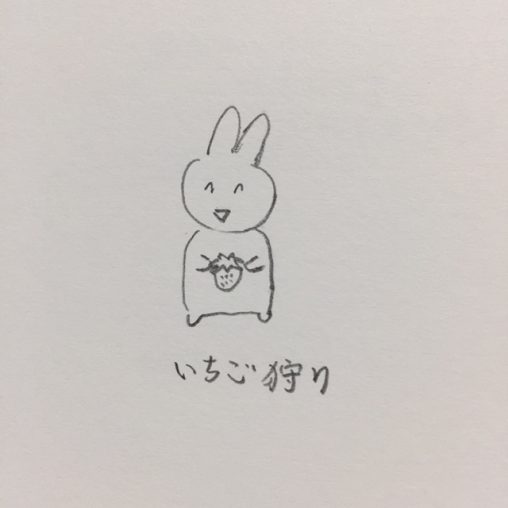 いちご狩り